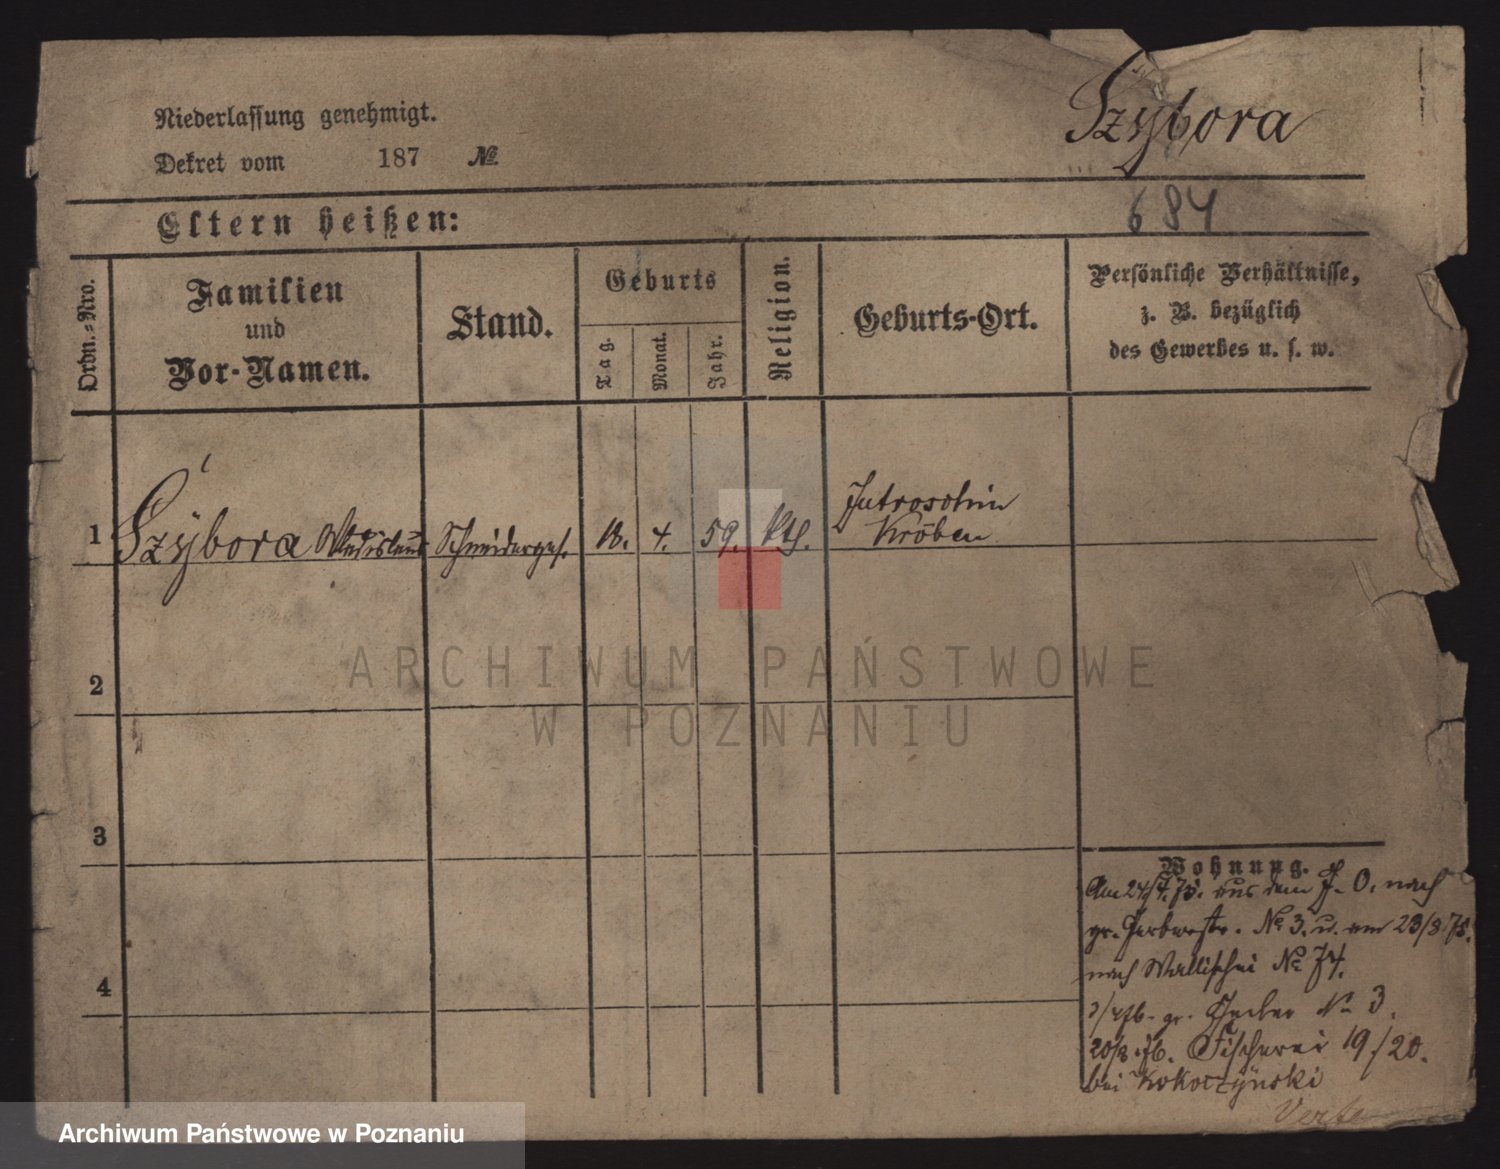 Niederlassung genehmigt.
Szybora
Dekret vom 187 №.
684
Eltern heißen:
Ordn.-Nro.
Familien
und
Vor-Namen.
Stand.
Geburts
Tag.
Monat.
Jahr.
Religion.
Geburts-Ort.
Persönliche Verhältnisse,
z. B. bezüglich
des Gewerbes u. s. w.
1 Szybora Wladislaus Schneiderges. 18. 4. 59. kth. Jutroschin
Kröben
2
3
4
ARCHIWUM PAŃSTWOWE
W POZNANIU
Wohnung.
Am 24/4. 75. aus dem J. O. nach
gr. Gerberstr. № 3. u. am 23/8 75.
nach Wallischei № 74.
gr. Gerber № 3.
20/8. 76. Fischerei 19/20.
bei Kokoczynski
Verte
Archiwum Państwowe w Poznaniu